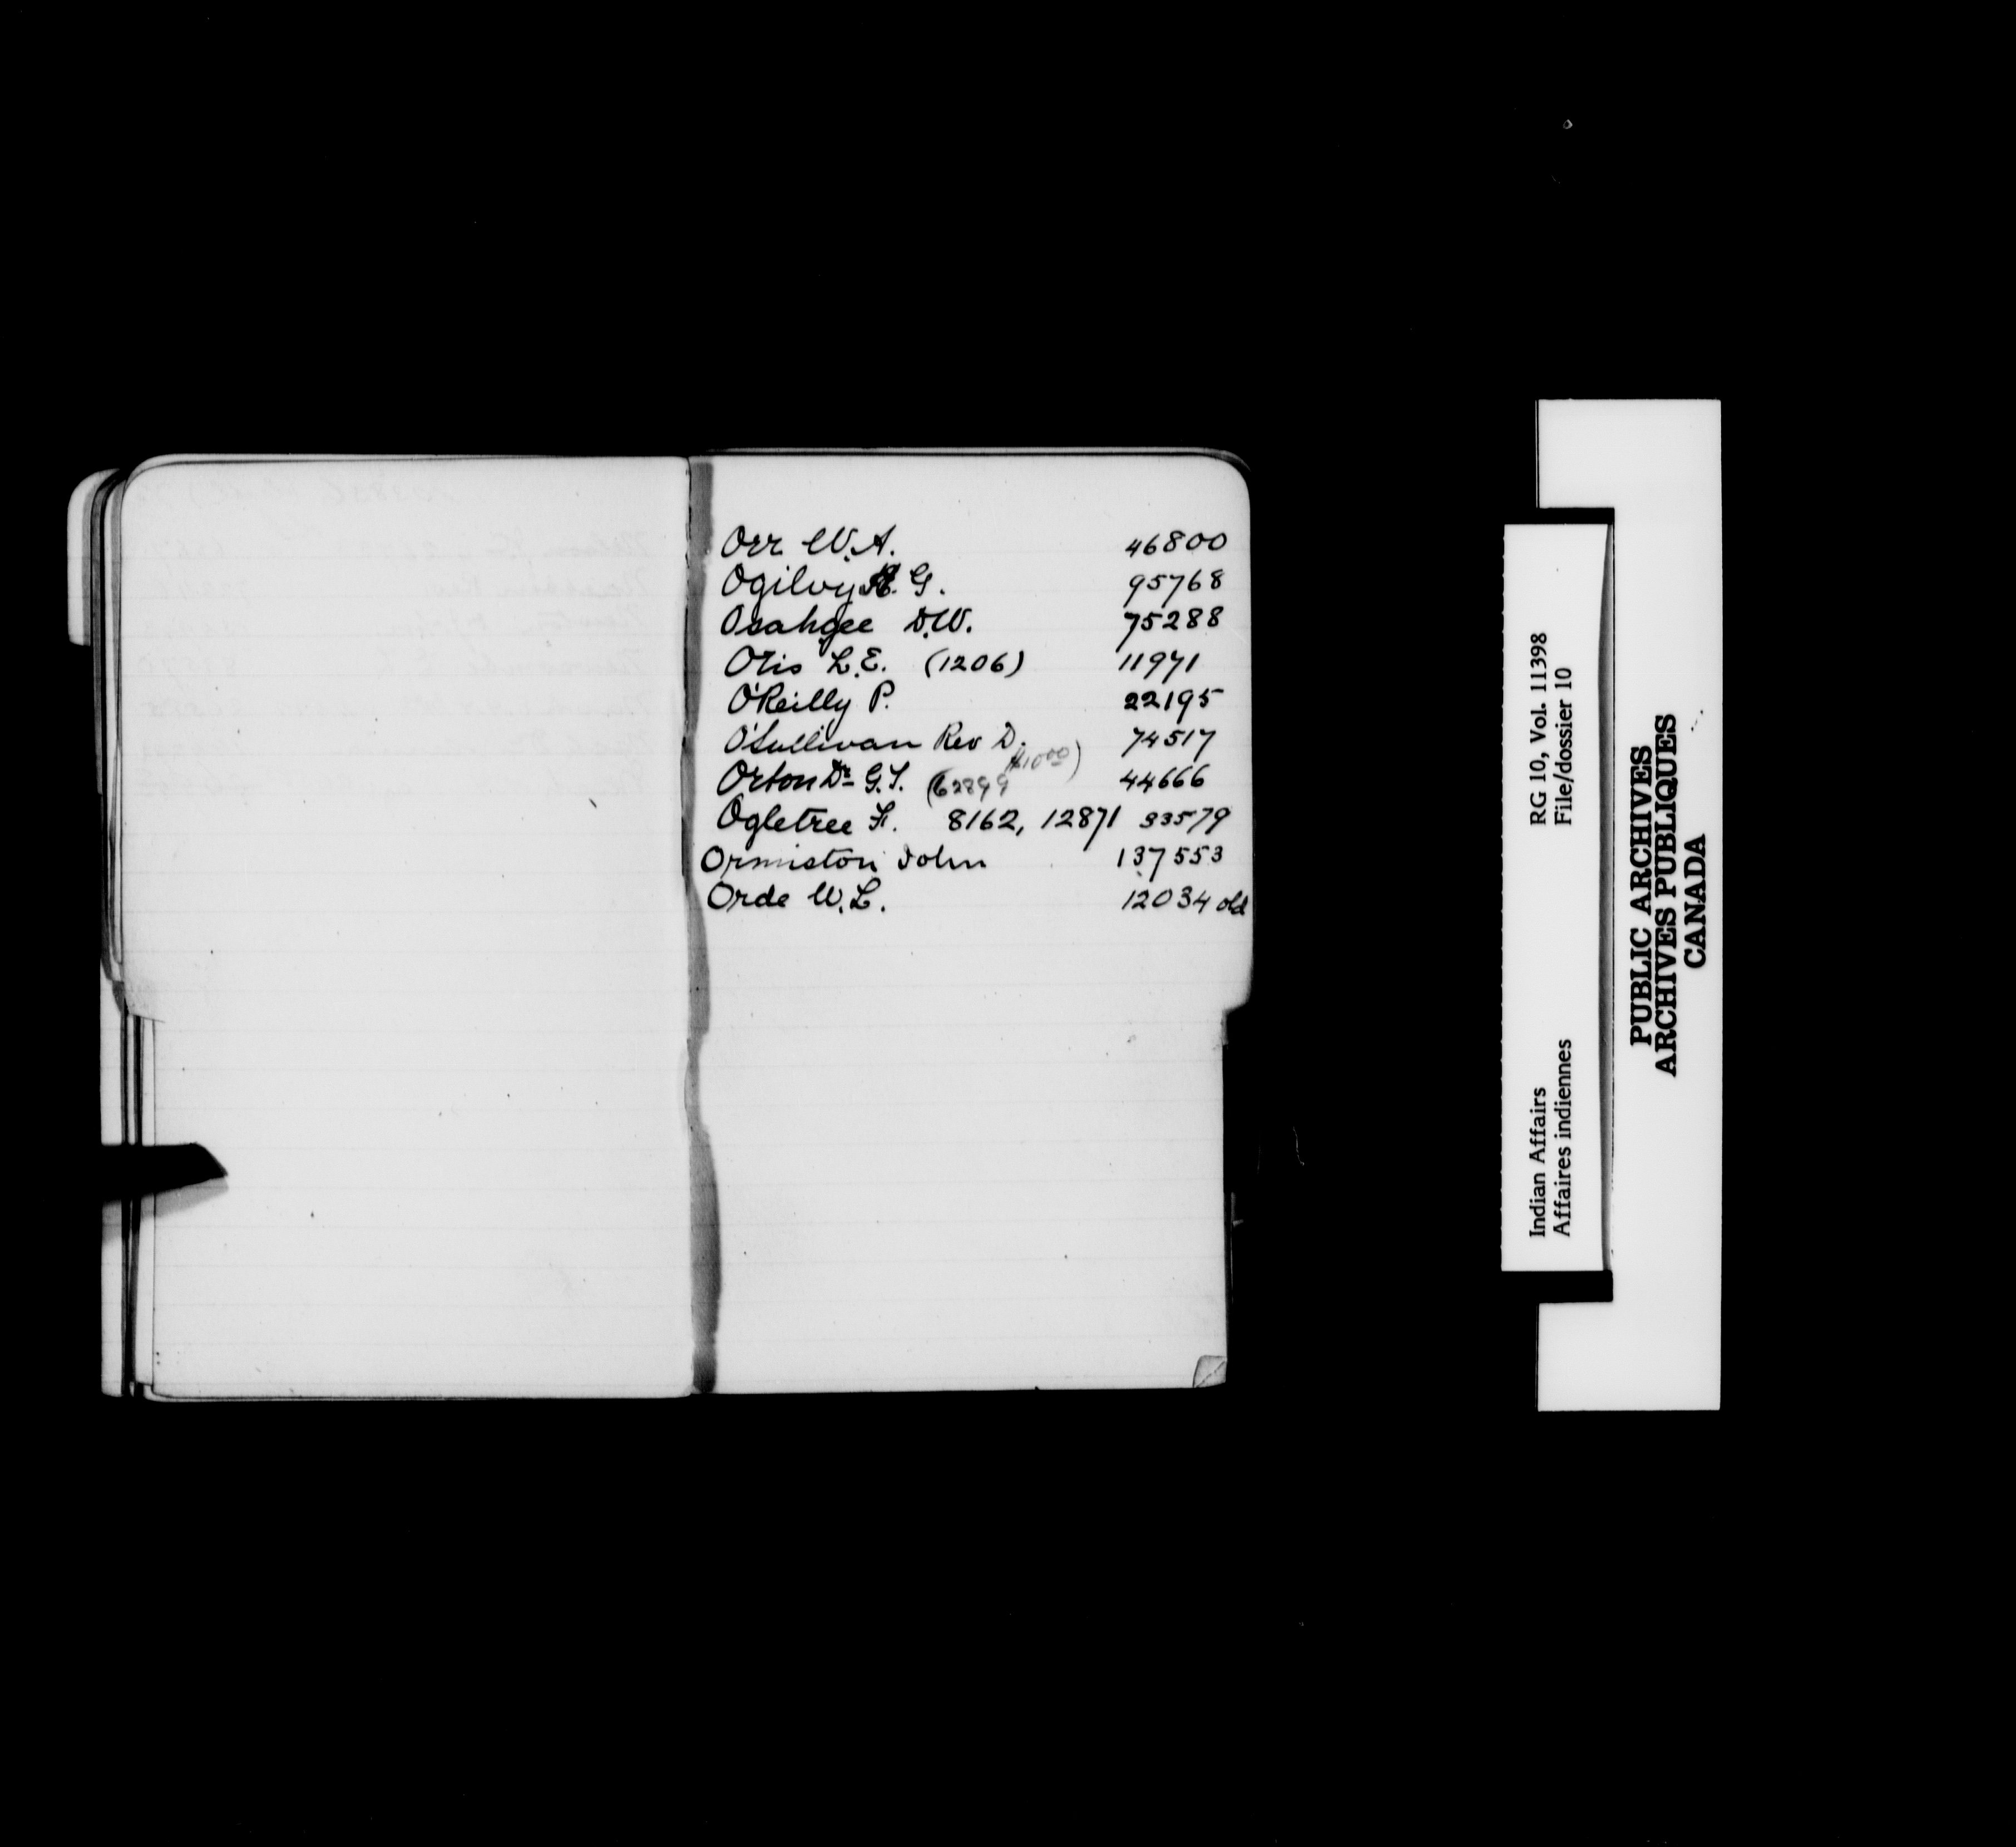 Orr W.A. 46800
Ogilvy G. 95768
Osahgee D.W. 75288
Otis L.E. (1206) 11971
O'Reilly P. 22195
O'Sullivan Rev D. 74517
Orton Dr G.T. (62899 $1000) 44666
Ogletree F. 8162, 12871 33579
Ormiston John 137553
Orde W.L. 12034 old
Indian Affairs RG 10, Vol. 11398
Affaires indiennes File/dossier 10
PUBLIC ARCHIVES
ARCHIVES PUBLIQUES
CANADA